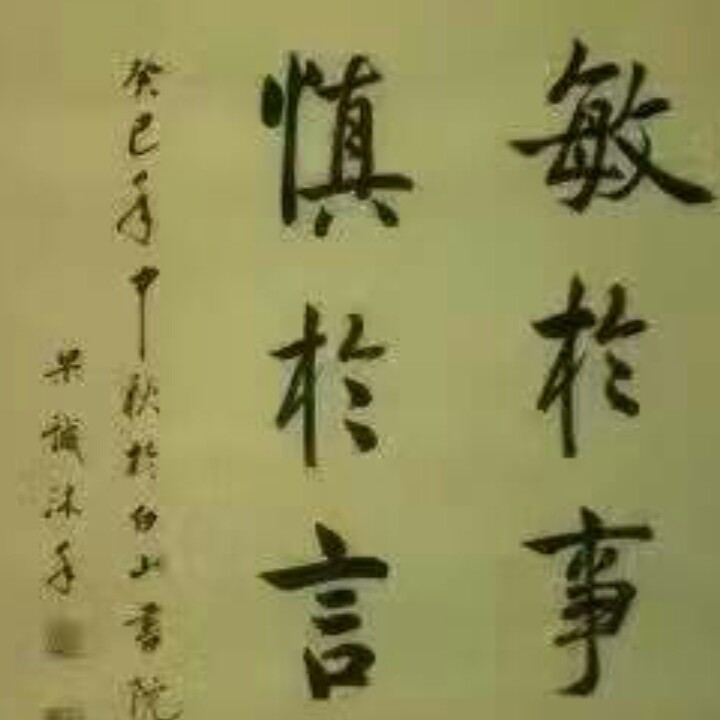 敏於事
慎於言
癸巳年中秋於白山書院
果誠沐手